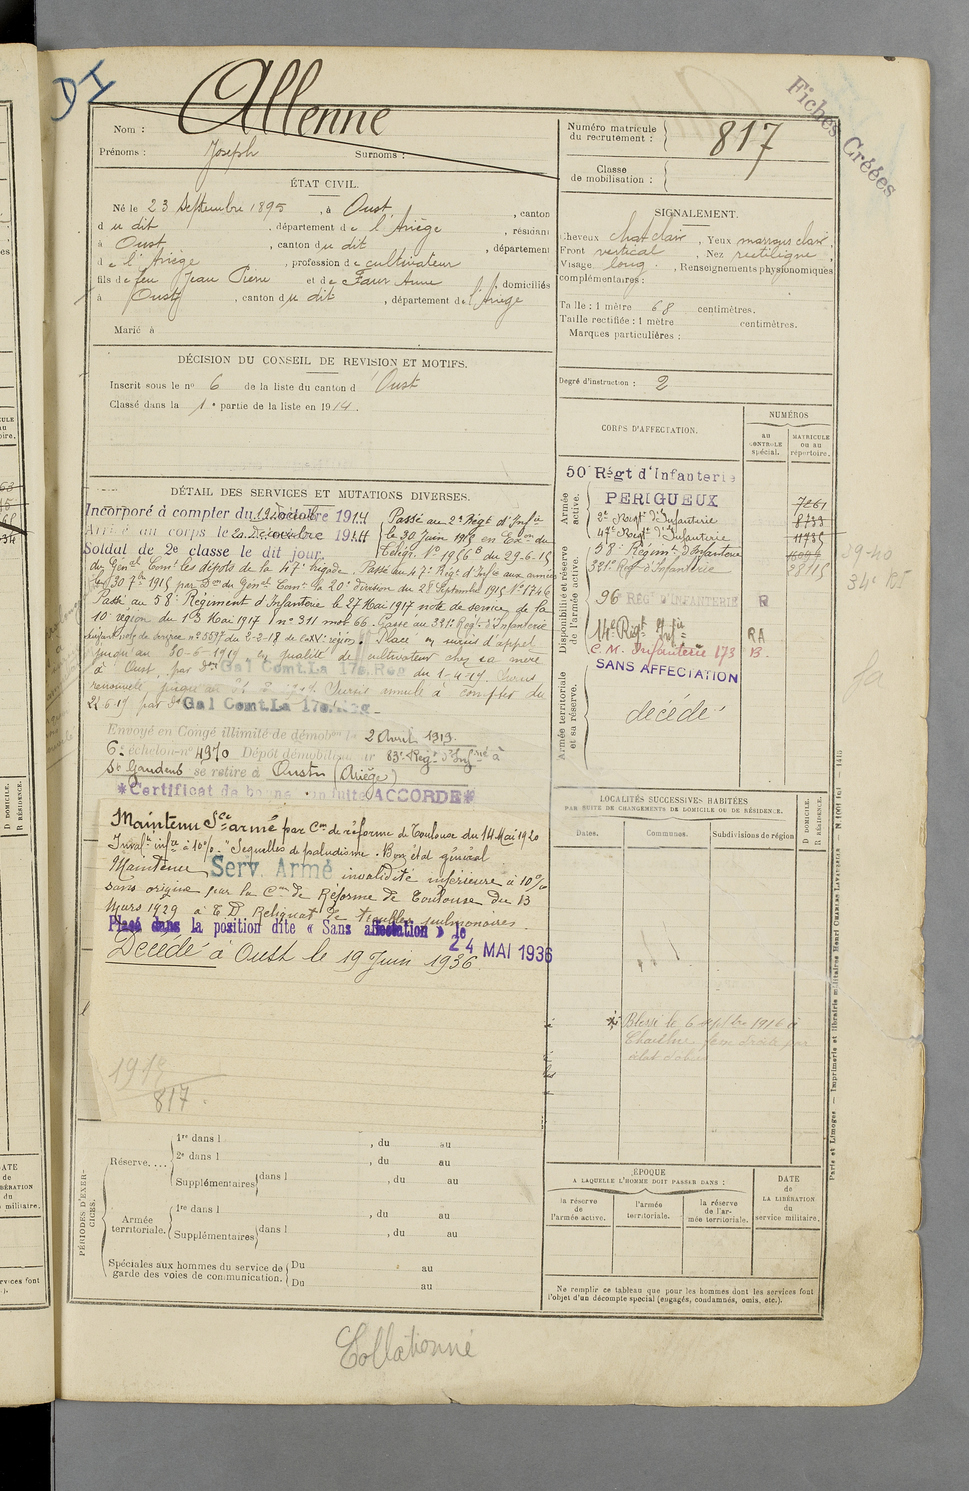 DI
Allenne
Nom :
Prénoms : Joseph Surnoms :
Numéro matricule
du recrutement : 817
Classe
de mobilisation :
Fiches Créées
ÉTAT CIVIL.
Né le 23 Septembre 1895, à Oust, canton
du dit, département de l'Ariège, résidant
à Oust, canton du dit, département
de l'Ariège, profession de cultivateur
fils de feu Jean Pierre et de Faur Anne domiciliés
à Oust, canton du dit, département de l'Ariège
Marié à
SIGNALEMENT.
Cheveux chat clair, Yeux marrons clair,
Front vertical, Nez rectiligne,
Visage long, Renseignements physionomiques
complémentaires :
Taille : 1 mètre 68 centimètres.
Taille rectifiée : 1 mètre centimètres.
Marques particulières :
DÉCISION DU CONSEIL DE REVISION ET MOTIFS.
Inscrit sous le nº 6 de la liste du canton d'Oust
Classé dans la 1e partie de la liste en 1914.
Degré d'instruction : 2
CORPS D'AFFECTATION.
NUMÉROS
AU CONTROLE spécial.
MATRICULE ou au répertoire.
Armée active.
50 Régt d'Infanterie
PERIGUEUX 7261
2e Regt d'Infanterie 8733
47e Regt d'Infanterie 11735
58e Régim. d'Infanterie
321e Regt d'Infanterie 28115
Disponibilité et réserve de l'armée active.
96 REGt D'INFANTERIE R
14e Regt RA
C. M. Infanterie 173 B.
SANS AFFECTATION
Armée territoriale et sa réserve.
décédé
29-40
34e RI
DÉTAIL DES SERVICES ET MUTATIONS DIVERSES.
Incorporé à compter du 19 octobre 1914
Arrivé au corps le 20 octobre 1914
Soldat de 2e classe le dit jour.
Passé au 2e Régt d'Infie
le 30 Juin 1915 en Ex.on du
Télég. Nº 1966B du 29-6-15
du Génal Comt les dépôts de la 47e brigade. Passé au 47e Régt d'Infie aux armées
le 30 7bre 1915 par Don du Genal Comt la 20e Division du 28 Septembre 1915 Nº 1746
Passé au 58e Régiment d'Infanterie le 27 Mai 1917 note de service de la
10e région du 13 Mai 1917 nº 311 mob 66. Passé au 321e Regt d'Infanterie
nº 5597 du 2-2-18 de la XVe région. Placé en sursis d'appel
jusqu'au 30-6-1919 en qualité de cultivateur chez sa mère
à Oust, par don Gal Comt. La 17e. Reg du 1-4-19. Sursis
renouvelé jusqu'au Sursis annulé à compter du
22-6-19 par don Gal Comt. La 17e. Reg.
Envoyé en Congé illimité de démobon le 2 Avril 1919.
6e échelon nº 4970 Dépôt démobilisateur 83e Regt d'Infrie à
St Gaudens se retire à Oust (Ariège)
*Certificat de bonne conduite ACCORDÉ*
Maintenu Sce armé par Con de réforme de Toulouse du 14 Mai 1920
Inval. infre à 10% "Sequelles de paludisme. Bon état général
Maintenu Serv. Armé invalidité inférieure à 10%
sans origine par la Con de Réforme de Toulouse du 13
Mars 1929 à E.D. Reliquat de troubles pulmonaires.
Placé dans la position dite « Sans affectation » le
24 MAI 1936
Décédé à Oust le 19 Juin 1936.
1913
817.
LOCALITÉS SUCCESSIVES HABITÉES
PAR SUITE DE CHANGEMENTS DE DOMICILE OU DE RÉSIDENCE.
Dates. Communes. Subdivisions de région
D DOMICILE.
R RÉSIDENCE.
Blessé le 6 septbre 1916 à
Chaulnes, fesse droite par
éclat d'obus
PÉRIODES D'EXERCICES.
Réserve.... 1re dans l , du au
2e dans l , du au
Supplémentaires dans l , du au
Armée territoriale. 1re dans l , du au
Supplémentaires dans l , du au
Spéciales aux hommes du service de garde des voies de communication. Du au
Du au
ÉPOQUE
A LAQUELLE L'HOMME DOIT PASSER DANS :
la réserve de l'armée active.
l'armée territoriale.
la réserve de l'armée territoriale.
DATE de LA LIBÉRATION du service militaire.
Ne remplir ce tableau que pour les hommes dont les services font
l'objet d'un décompte spécial (engagés, condamnés, omis, etc.).
Paris et Limoges. — Imprimerie et librairie militaires Henri CHARLES-LAVAUZELLE
Collationné